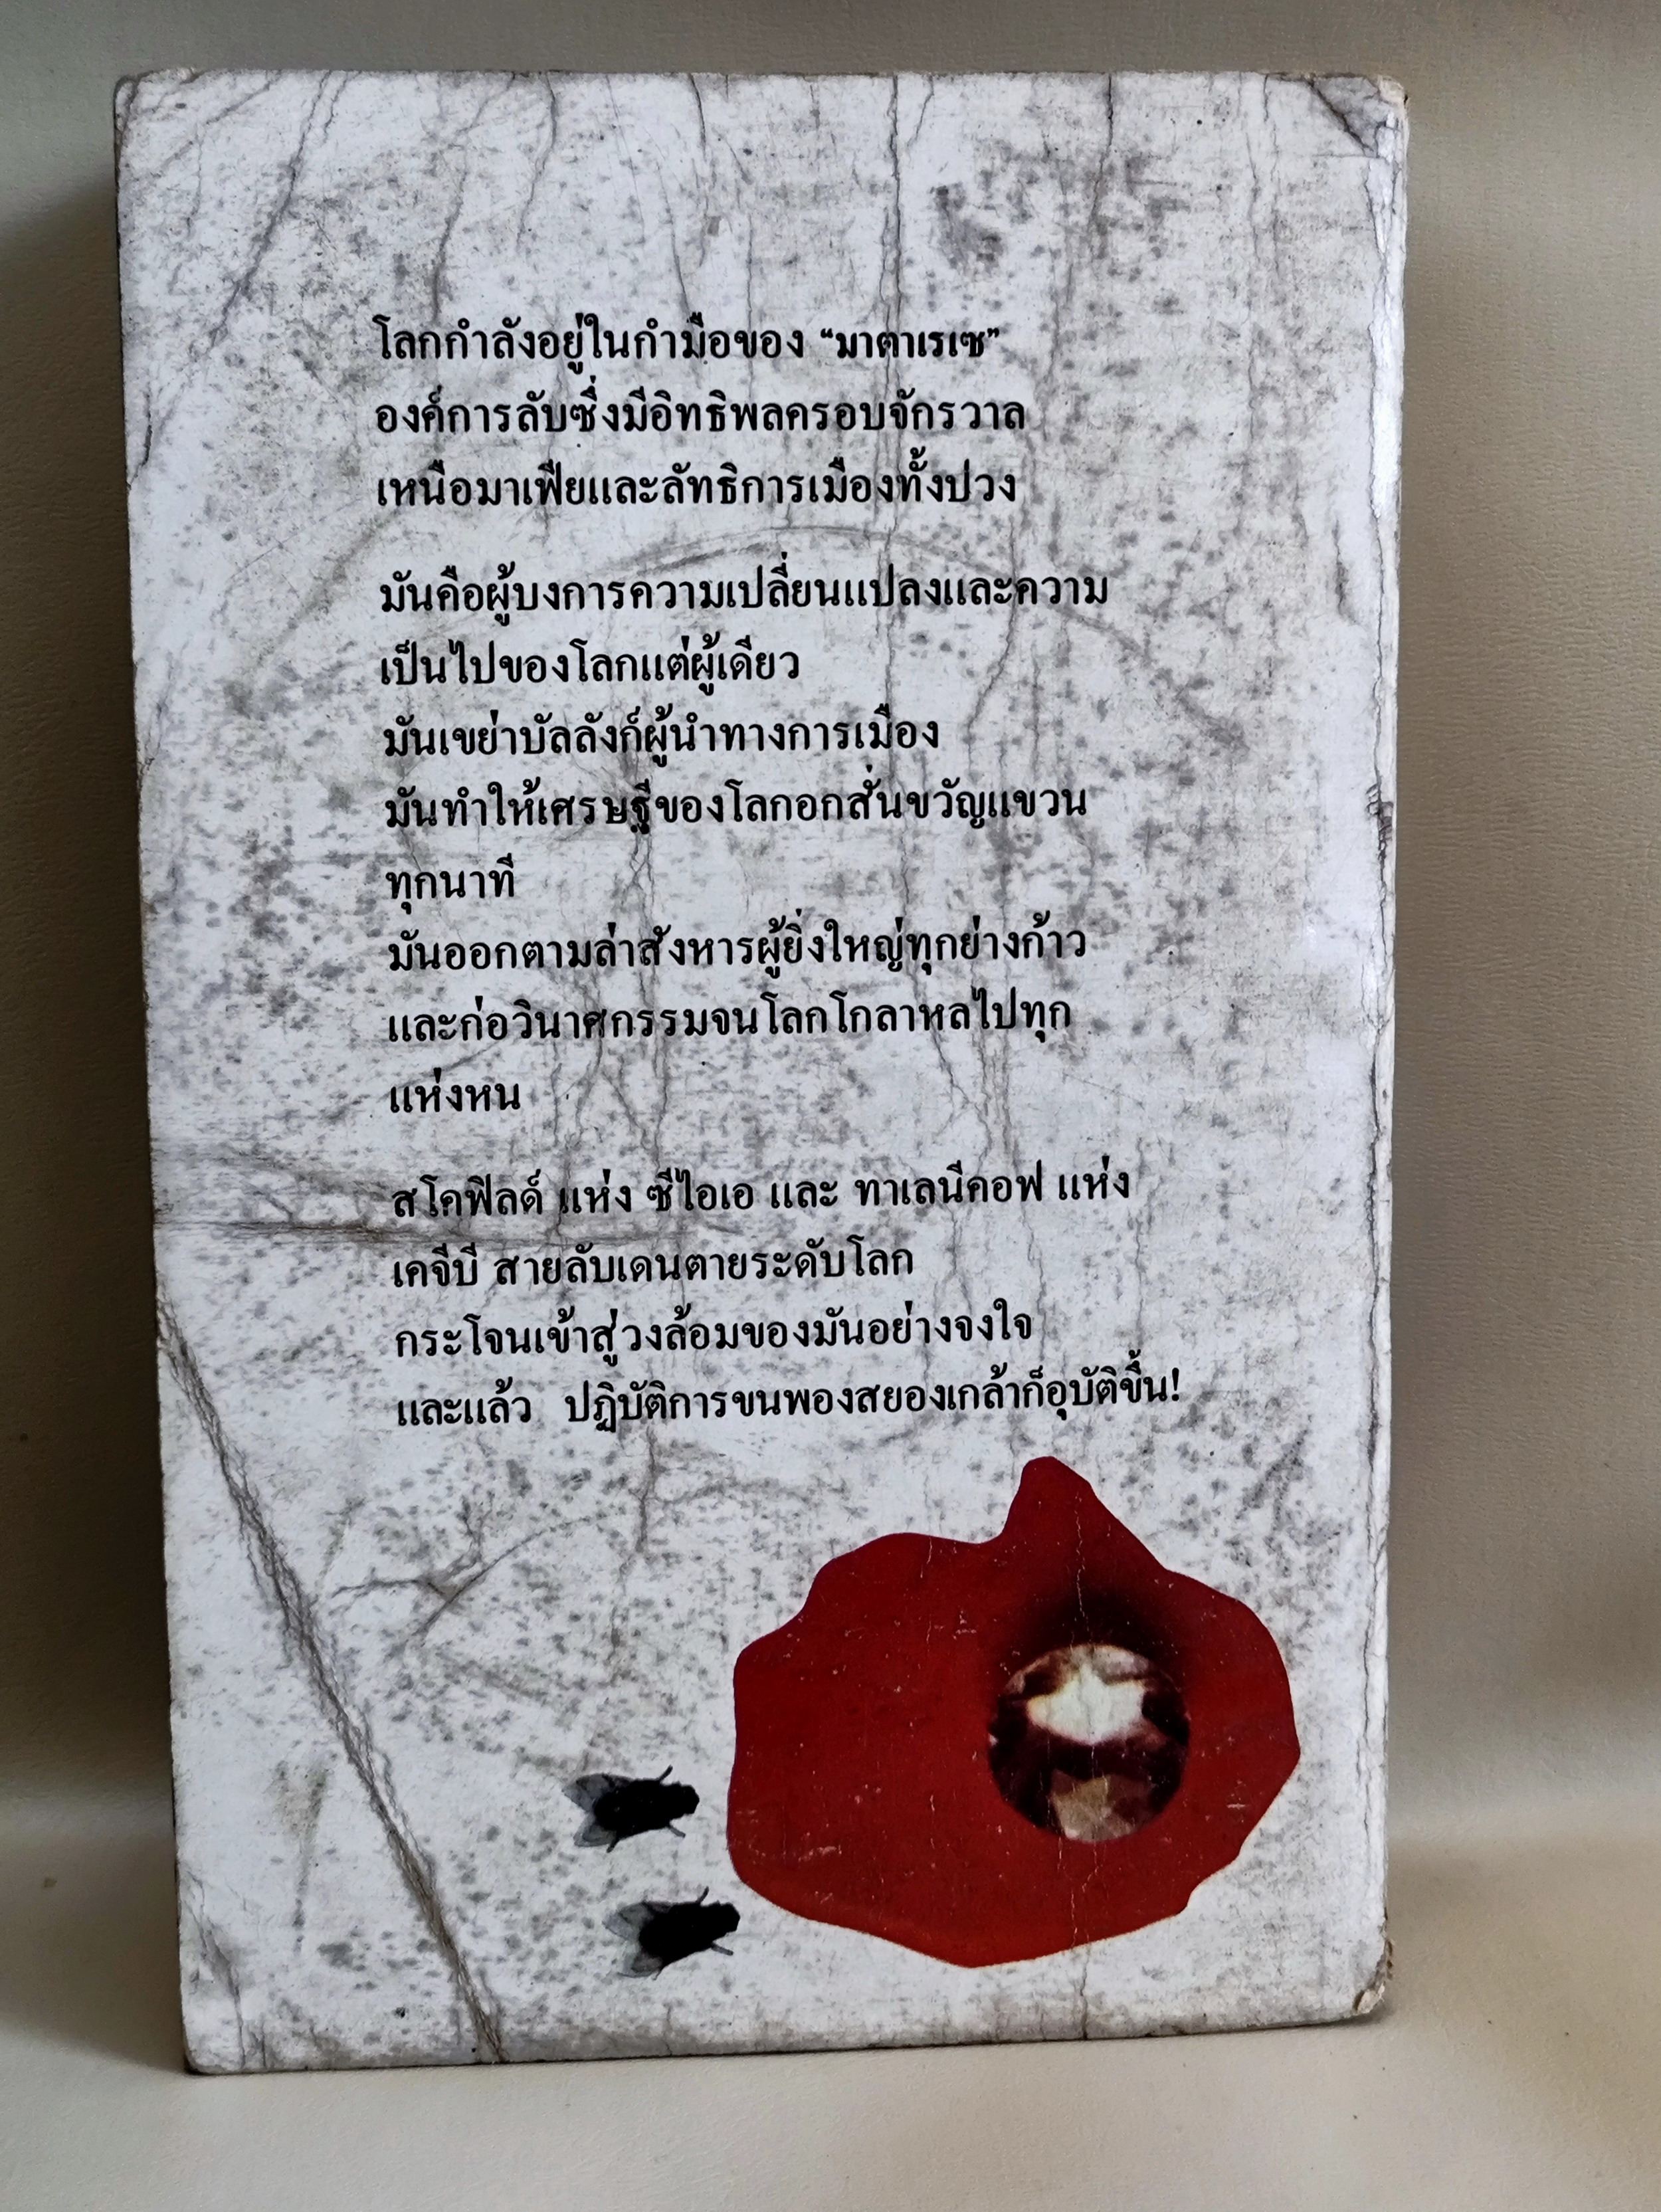 โลกกำลังอยู่ในกำมือของ “มาตาเรเซ”
องค์การลับซึ่งมีอิทธิพลครอบจักรวาล
เหนือมาเฟียและลัทธิการเมืองทั้งปวง
มันคือผู้บงการความเปลี่ยนแปลงและความ
เป็นไปของโลกแต่ผู้เดียว
มันเขย่าบัลลังก์ผู้นำทางการเมือง
มันทำให้เศรษฐีของโลกอกสั่นขวัญแขวน
ทุกนาที
มันออกตามล่าสังหารผู้ยิ่งใหญ่ทุกย่างก้าว
และก่อวินาศกรรมจนโลกโกลาหลไปทุก
แห่งหน
สโคฟิลด์ แห่ง ซีไอเอ และ ทาเลนีคอฟ แห่ง
เคจีบี สายลับเดนตายระดับโลก
กระโจนเข้าสู่วงล้อมของมันอย่างจงใจ
และแล้ว ปฏิบัติการขนพองสยองเกล้าก็อุบัติขึ้น!